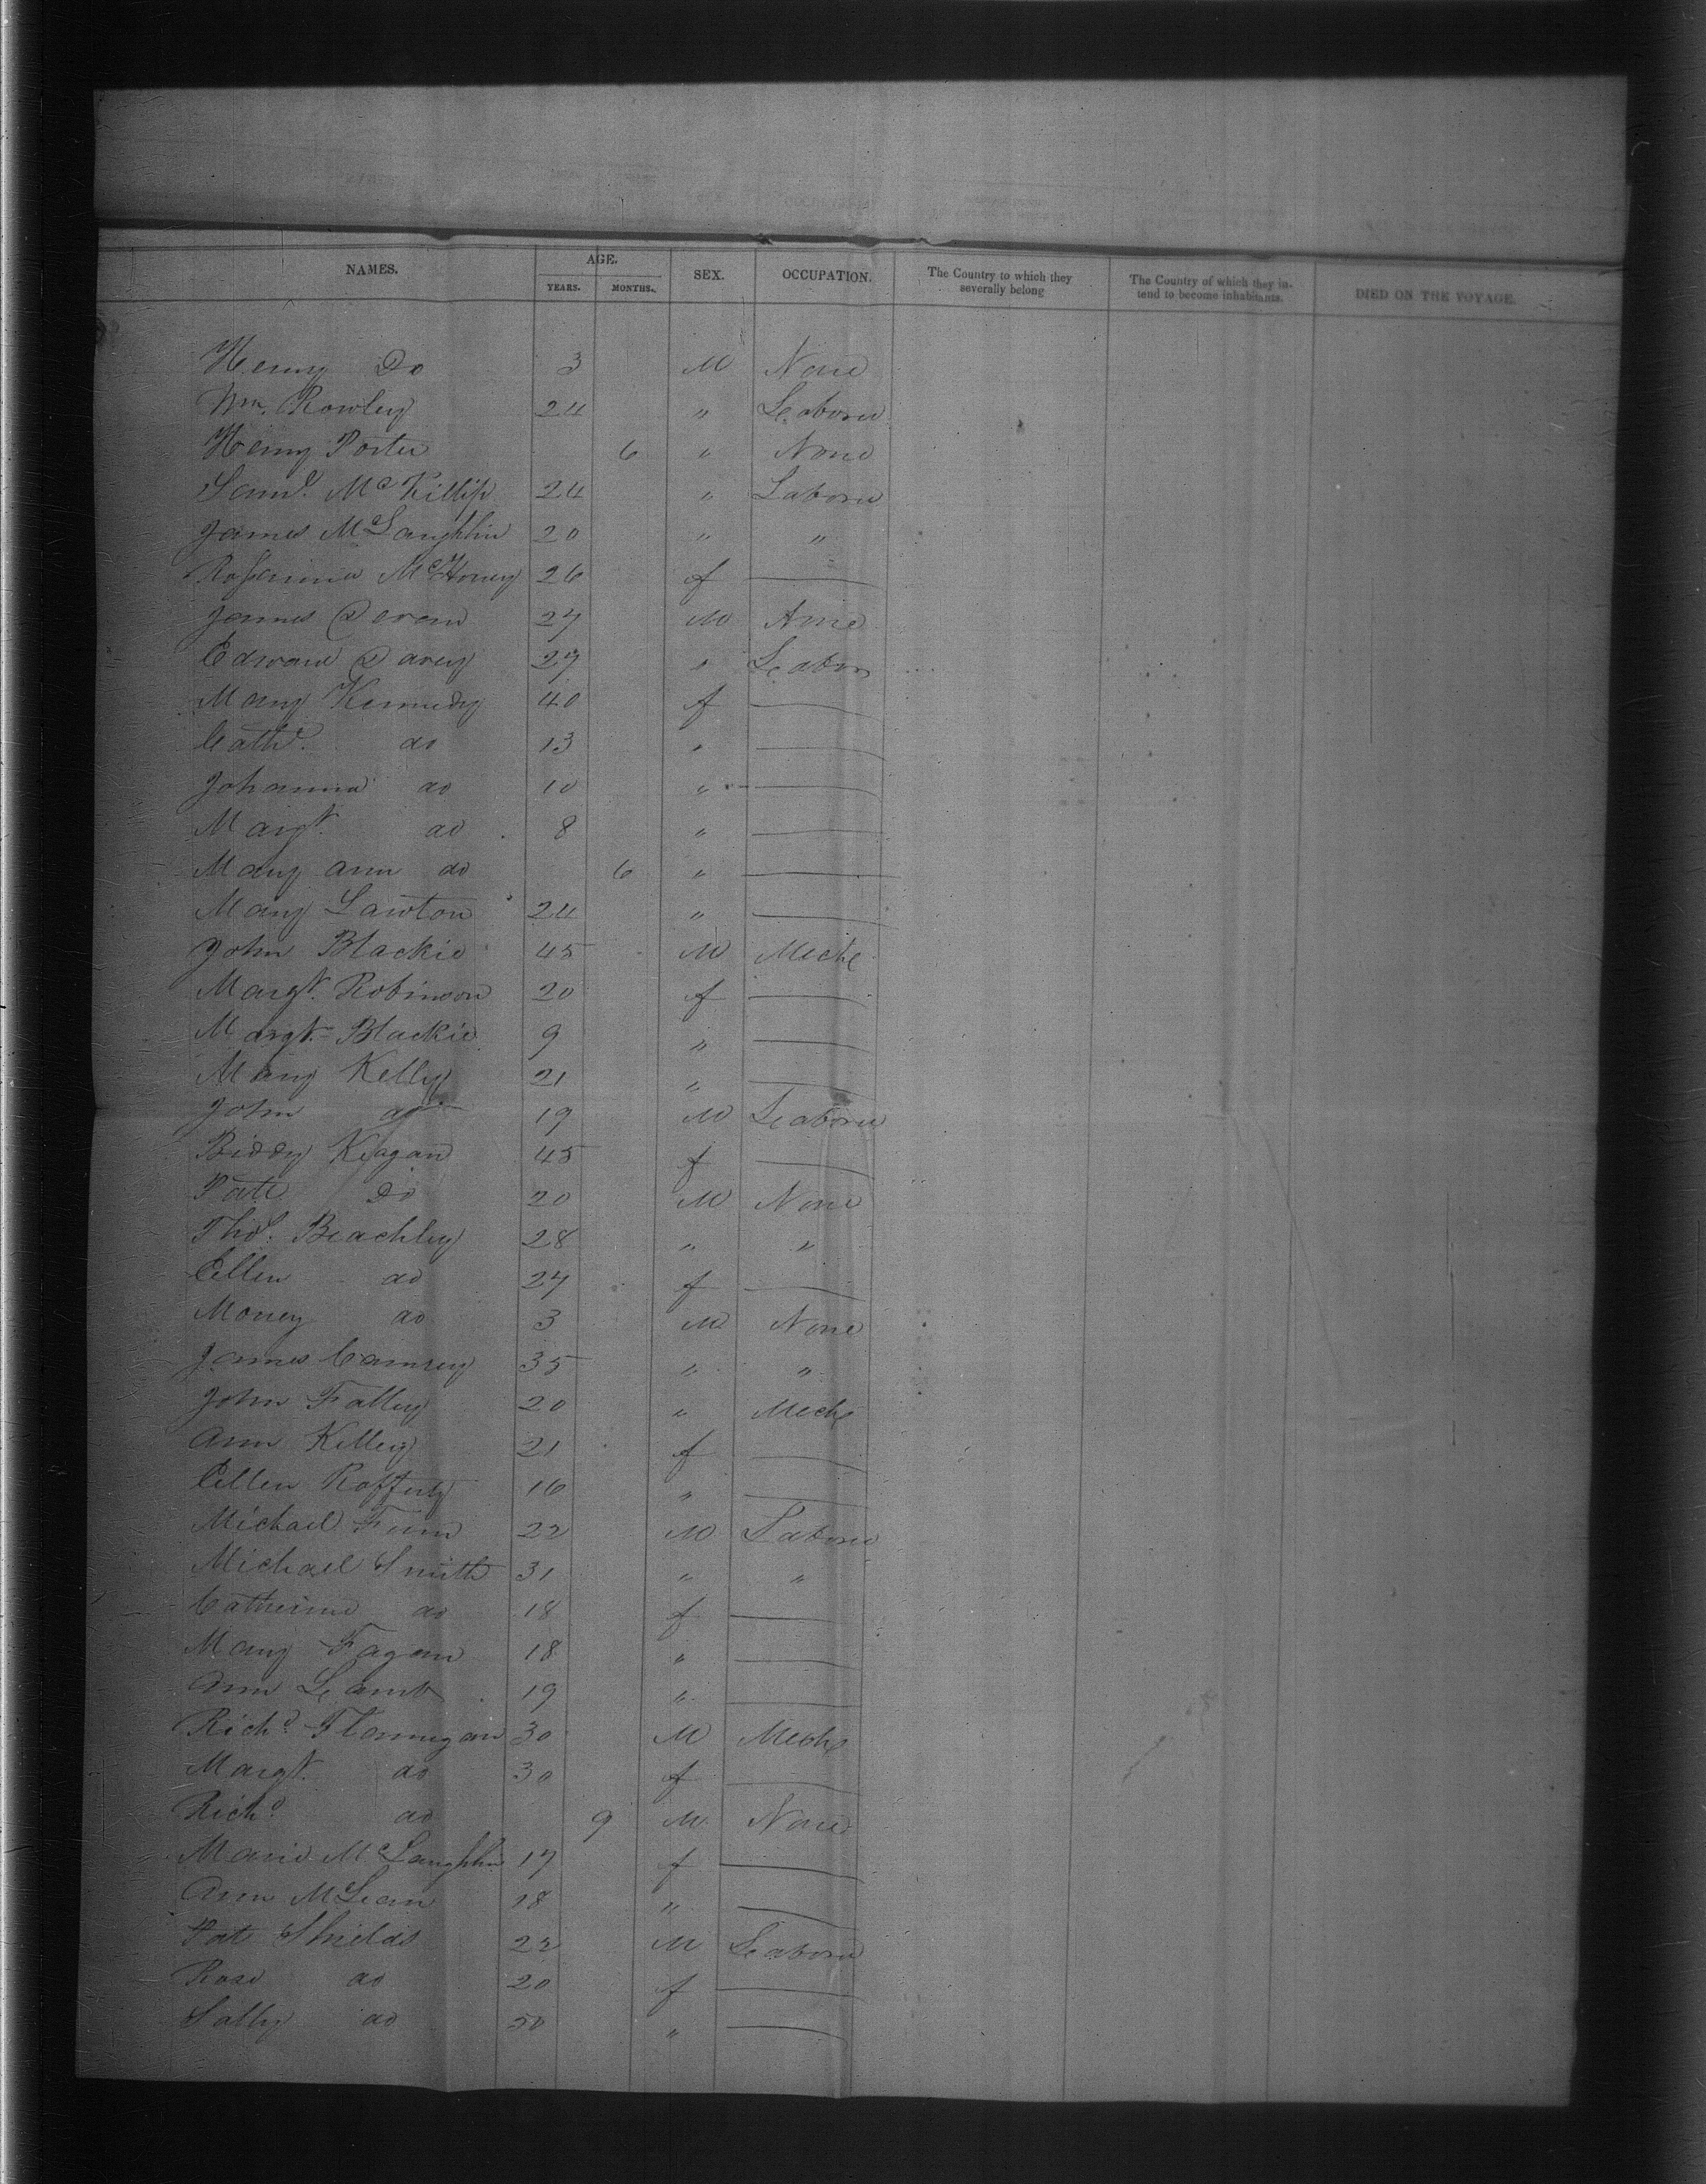 NAMES. AGE. SEX. OCCUPATION. The Country to which they severally belong The Country of which they intend to become inhabitants. DIED ON THE VOYAGE.
YEARS. MONTHS.
Henry Do 3 M None
Wm. Rowley 24 " Laborer
Henry Porter 6 " None
Saml. McKillip 24 " Laborer
James McLaughlin 20 " "
Rosanna 26 f
James Doran 27 M None
Edward Darcy 27 " Labor
Mary Kennedy 40 f
Cathe. do 13 "
Johanna do 10 "
Margt. do 8 "
Mary Ann do 6 "
Mary Lawton 24 "
John Blackie 45 M Mech
Margt. Robinson 20 f
Margt. Blackie 9 "
Mary Kelly 21 "
John do 19 M Laborer
Biddy Keagan 45 f
Patk Do 20 M None
Thos. Beachley 28 " "
Ellen do 27 f
Money do 3 M None
James 35 " "
John Falley 20 " Mech
Ann Kelley 21 f
Ellen Rafferty 16 "
Michael Finn 22 M Laborer
Michael Smith 31 " "
Catherine do 18 f
Mary Fagan 18 "
Ann Lamb 19 "
Richd. Flannigan 30 M Mech
Margt. do 30 f
Richd. do 9 M None
Maria McLaughlin 17 f
Ann McLean 18 "
Pat Shields 22 M Laborer
Rose do 20 f
Sally do 50 "